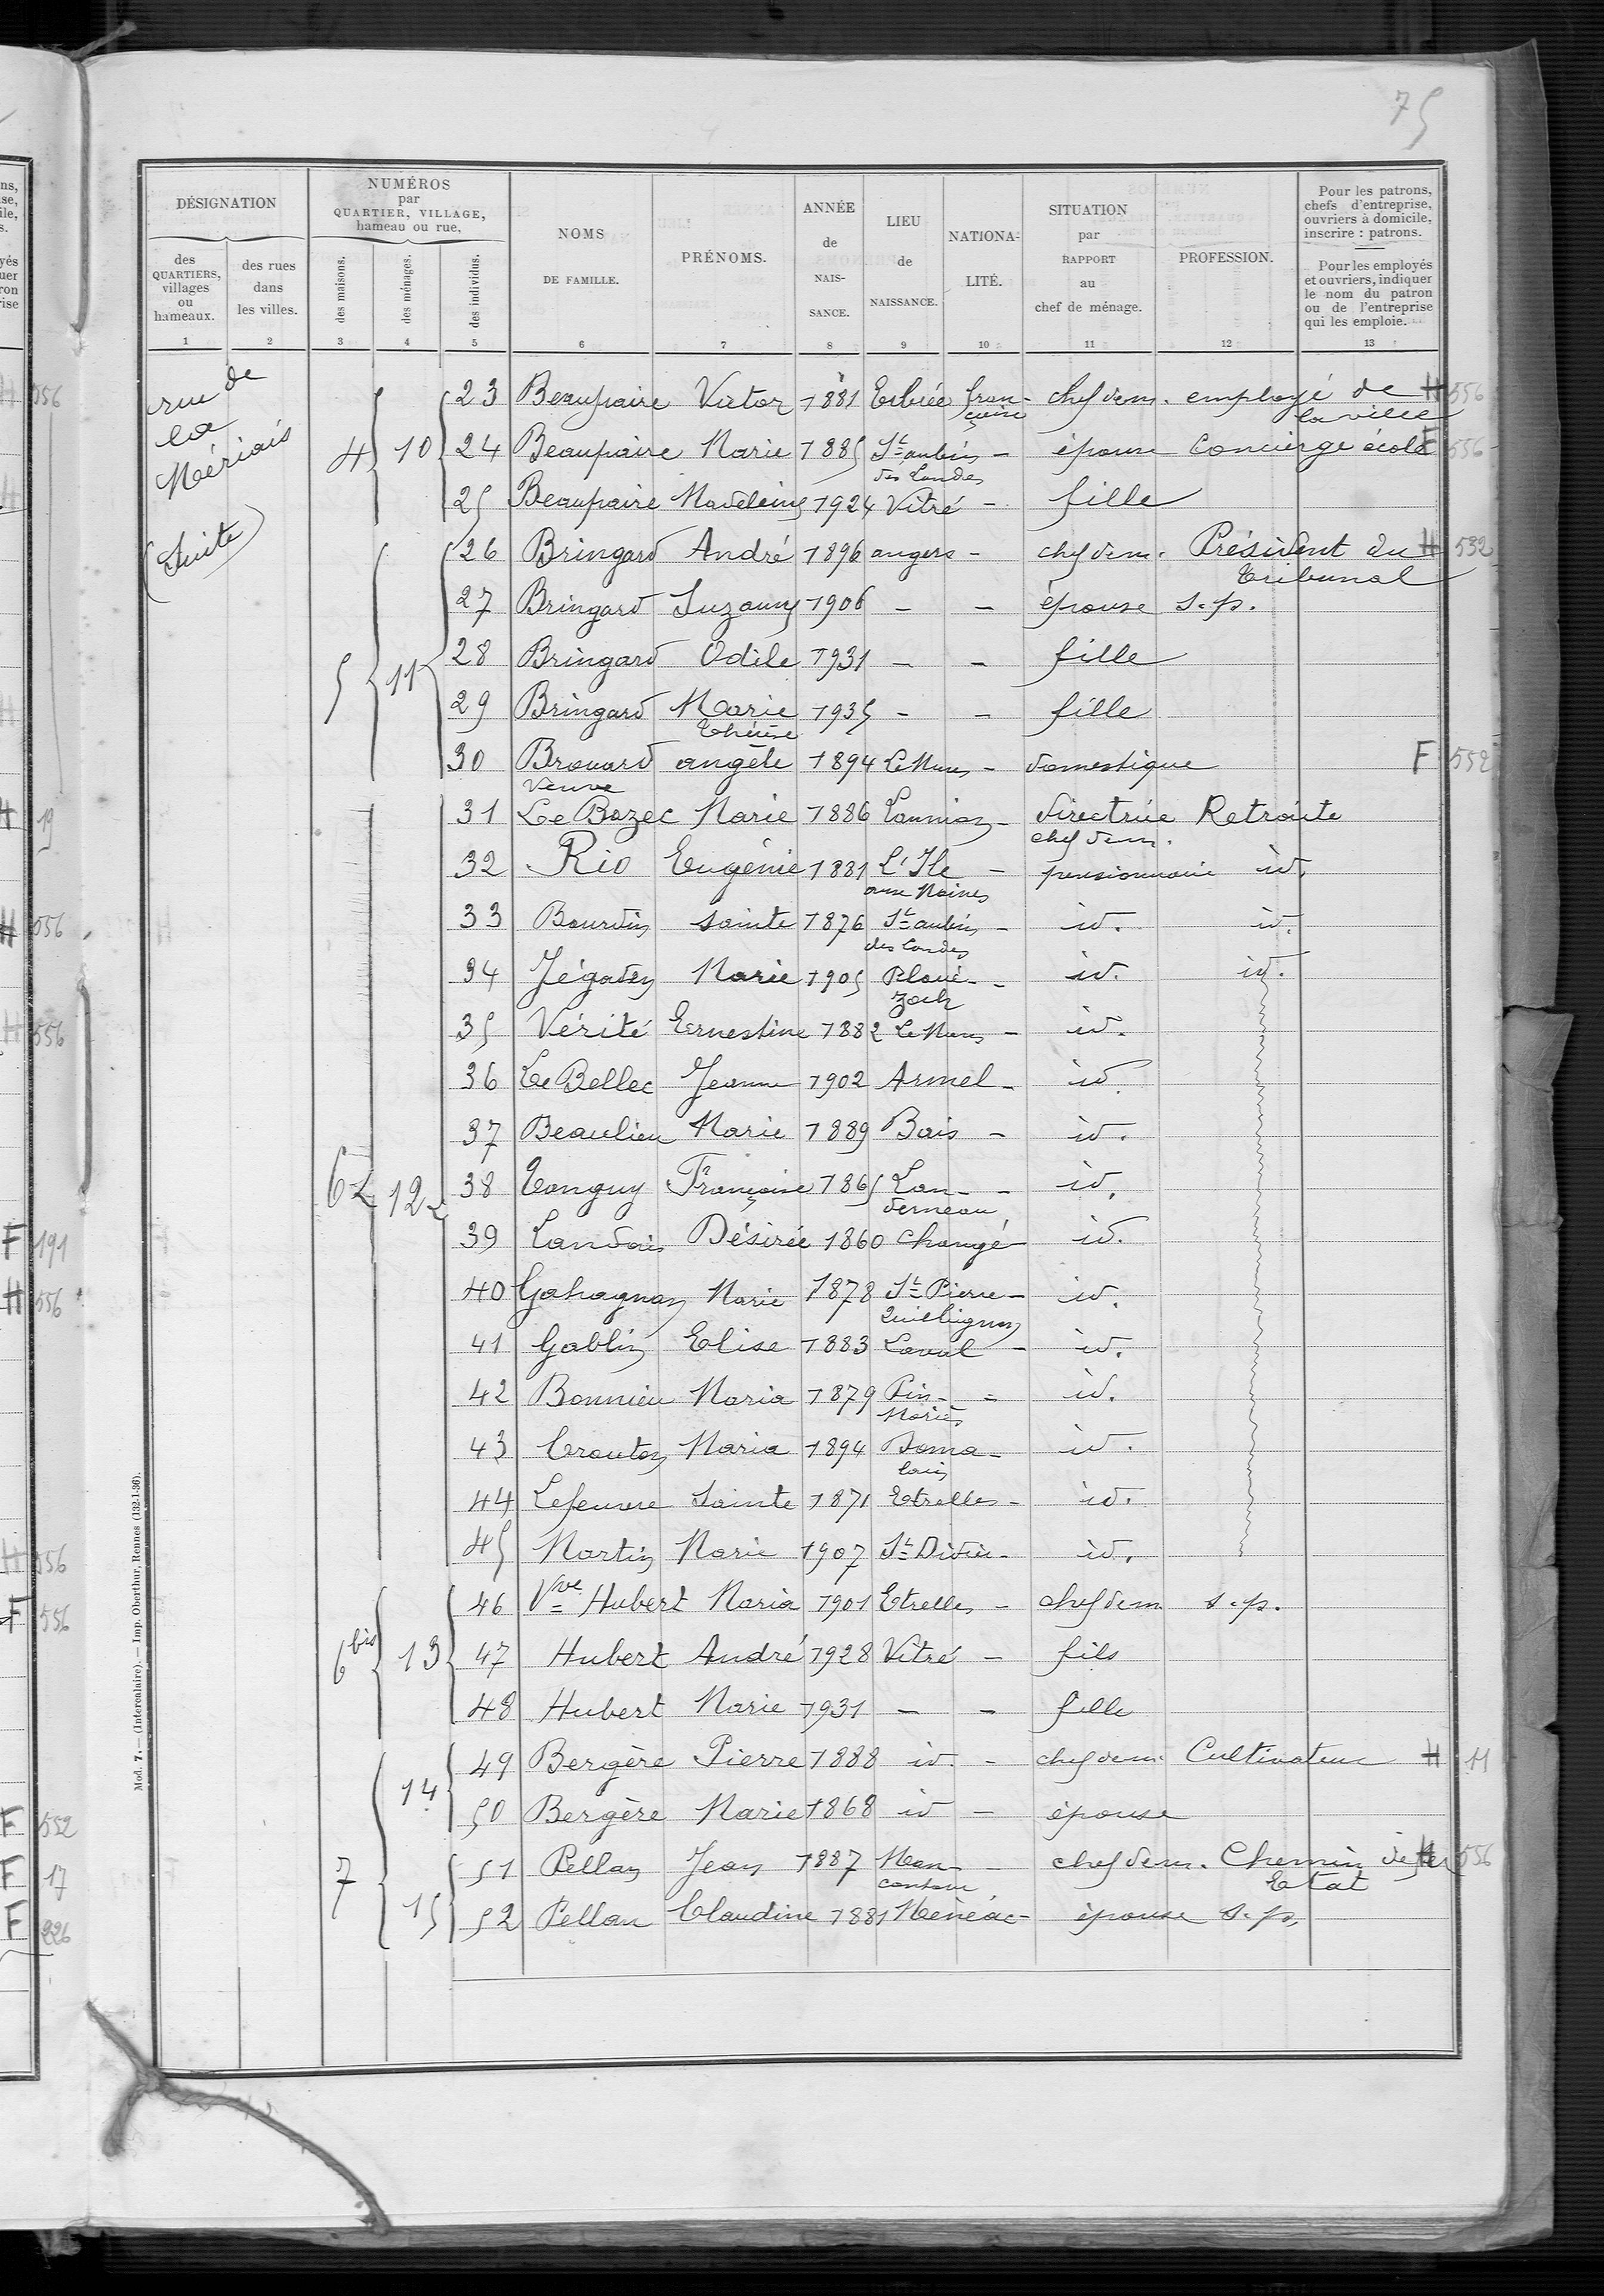 75
DÉSIGNATION
NUMÉROS
par
QUARTIER, VILLAGE,
hameau ou rue,
des
QUARTIERS,
villages
ou
hameaux.
des rues
dans
les villes.
des maisons.
des ménages.
des individus.
NOMS
DE FAMILLE.
PRÉNOMS.
ANNÉE
de
NAIS-
SANCE.
LIEU
de
NAISSANCE.
NATIONA-
LITÉ.
SITUATION
par
RAPPORT
au
chef de ménage.
PROFESSION.
Pour les patrons,
chefs d'entreprise,
ouvriers à domicile,
inscrire : patrons.
Pour les employés
et ouvriers, indiquer
le nom du patron
ou de l'entreprise
qui les emploie.
1 2 3 4 5 6 7 8 9 10 11 12 13
rue de
la
Mériais
(Suite)
4 10
23 Beaupaire Victor 1881 Erbrée fran- chef dem. employé de H 556
çaise la ville
24 Beaupaire Marie 1885 St aubin - épouse Concierge école F 556
des Landes
25 Beaupaire Madeleine 1924 Vitré - fille
5 11
26 Bringard André 1896 angers - chef dem. Président du H 532
Tribunal
27 Bringard Suzanne 1906 - - épouse s.p.
28 Bringard Odile 1931 - - fille
29 Bringard Marie 1935 - - fille
Thérèse
30 Brouard angèle 1894 Le Mans - domestique F 552
Veuve
31 Le Bozec Marie 1886 Lannion - directrice Retraite
chef dem.
32 Rio Eugénie 1881 L'Ile - pensionnaire id.
aux Moines
33 Bourdin Sainte 1876 St aubin - id. id.
des Landes
34 Jégaden Marie 1905 Ploué- - id. id.
zoch
35 Vérité Ernestine 1882 Le Mans - id.
36 Le Bellec Jeanne 1902 Armel - id
37 Beaulieu Marie 1889 Bais - id.
6 12
38 Tanguy Françoise 1865 Lan- - id.
derneau
39 Landais Désirée 1860 Changé - id.
40 Gahagnon Marie 1878 St Pierre - id.
Quilbignon
41 Gablin Elise 1883 Laval - id.
42 Bonnieu Maria 1879 - id.
43 Crouton Maria 1894 Doma- id.
lain
44 Lefeuvre Sainte 1871 Etrelles - id.
45 Martin Marie 1907 St Didier - id.
6bis 13
46 Vve Hubert Maria 1901 Etrelles - chef dem s.p.
47 Hubert André 1928 Vitré - fils
48 Hubert Marie 1931 - - fille
7 14
49 Bergère Pierre 1888 id. - chef dem. Cultivateur H 11
50 Bergère Marie 1868 id - épouse
15
51 Pellan Jean 1887 Mon- - chef dem. Chemin de fer H 556
contour Etat
52 Pellan Claudine 1881 Ménéac - épouse s.p.
Mod. 7. — (Intercalaire). — Imp. Oberthur, Rennes (132-1-36).